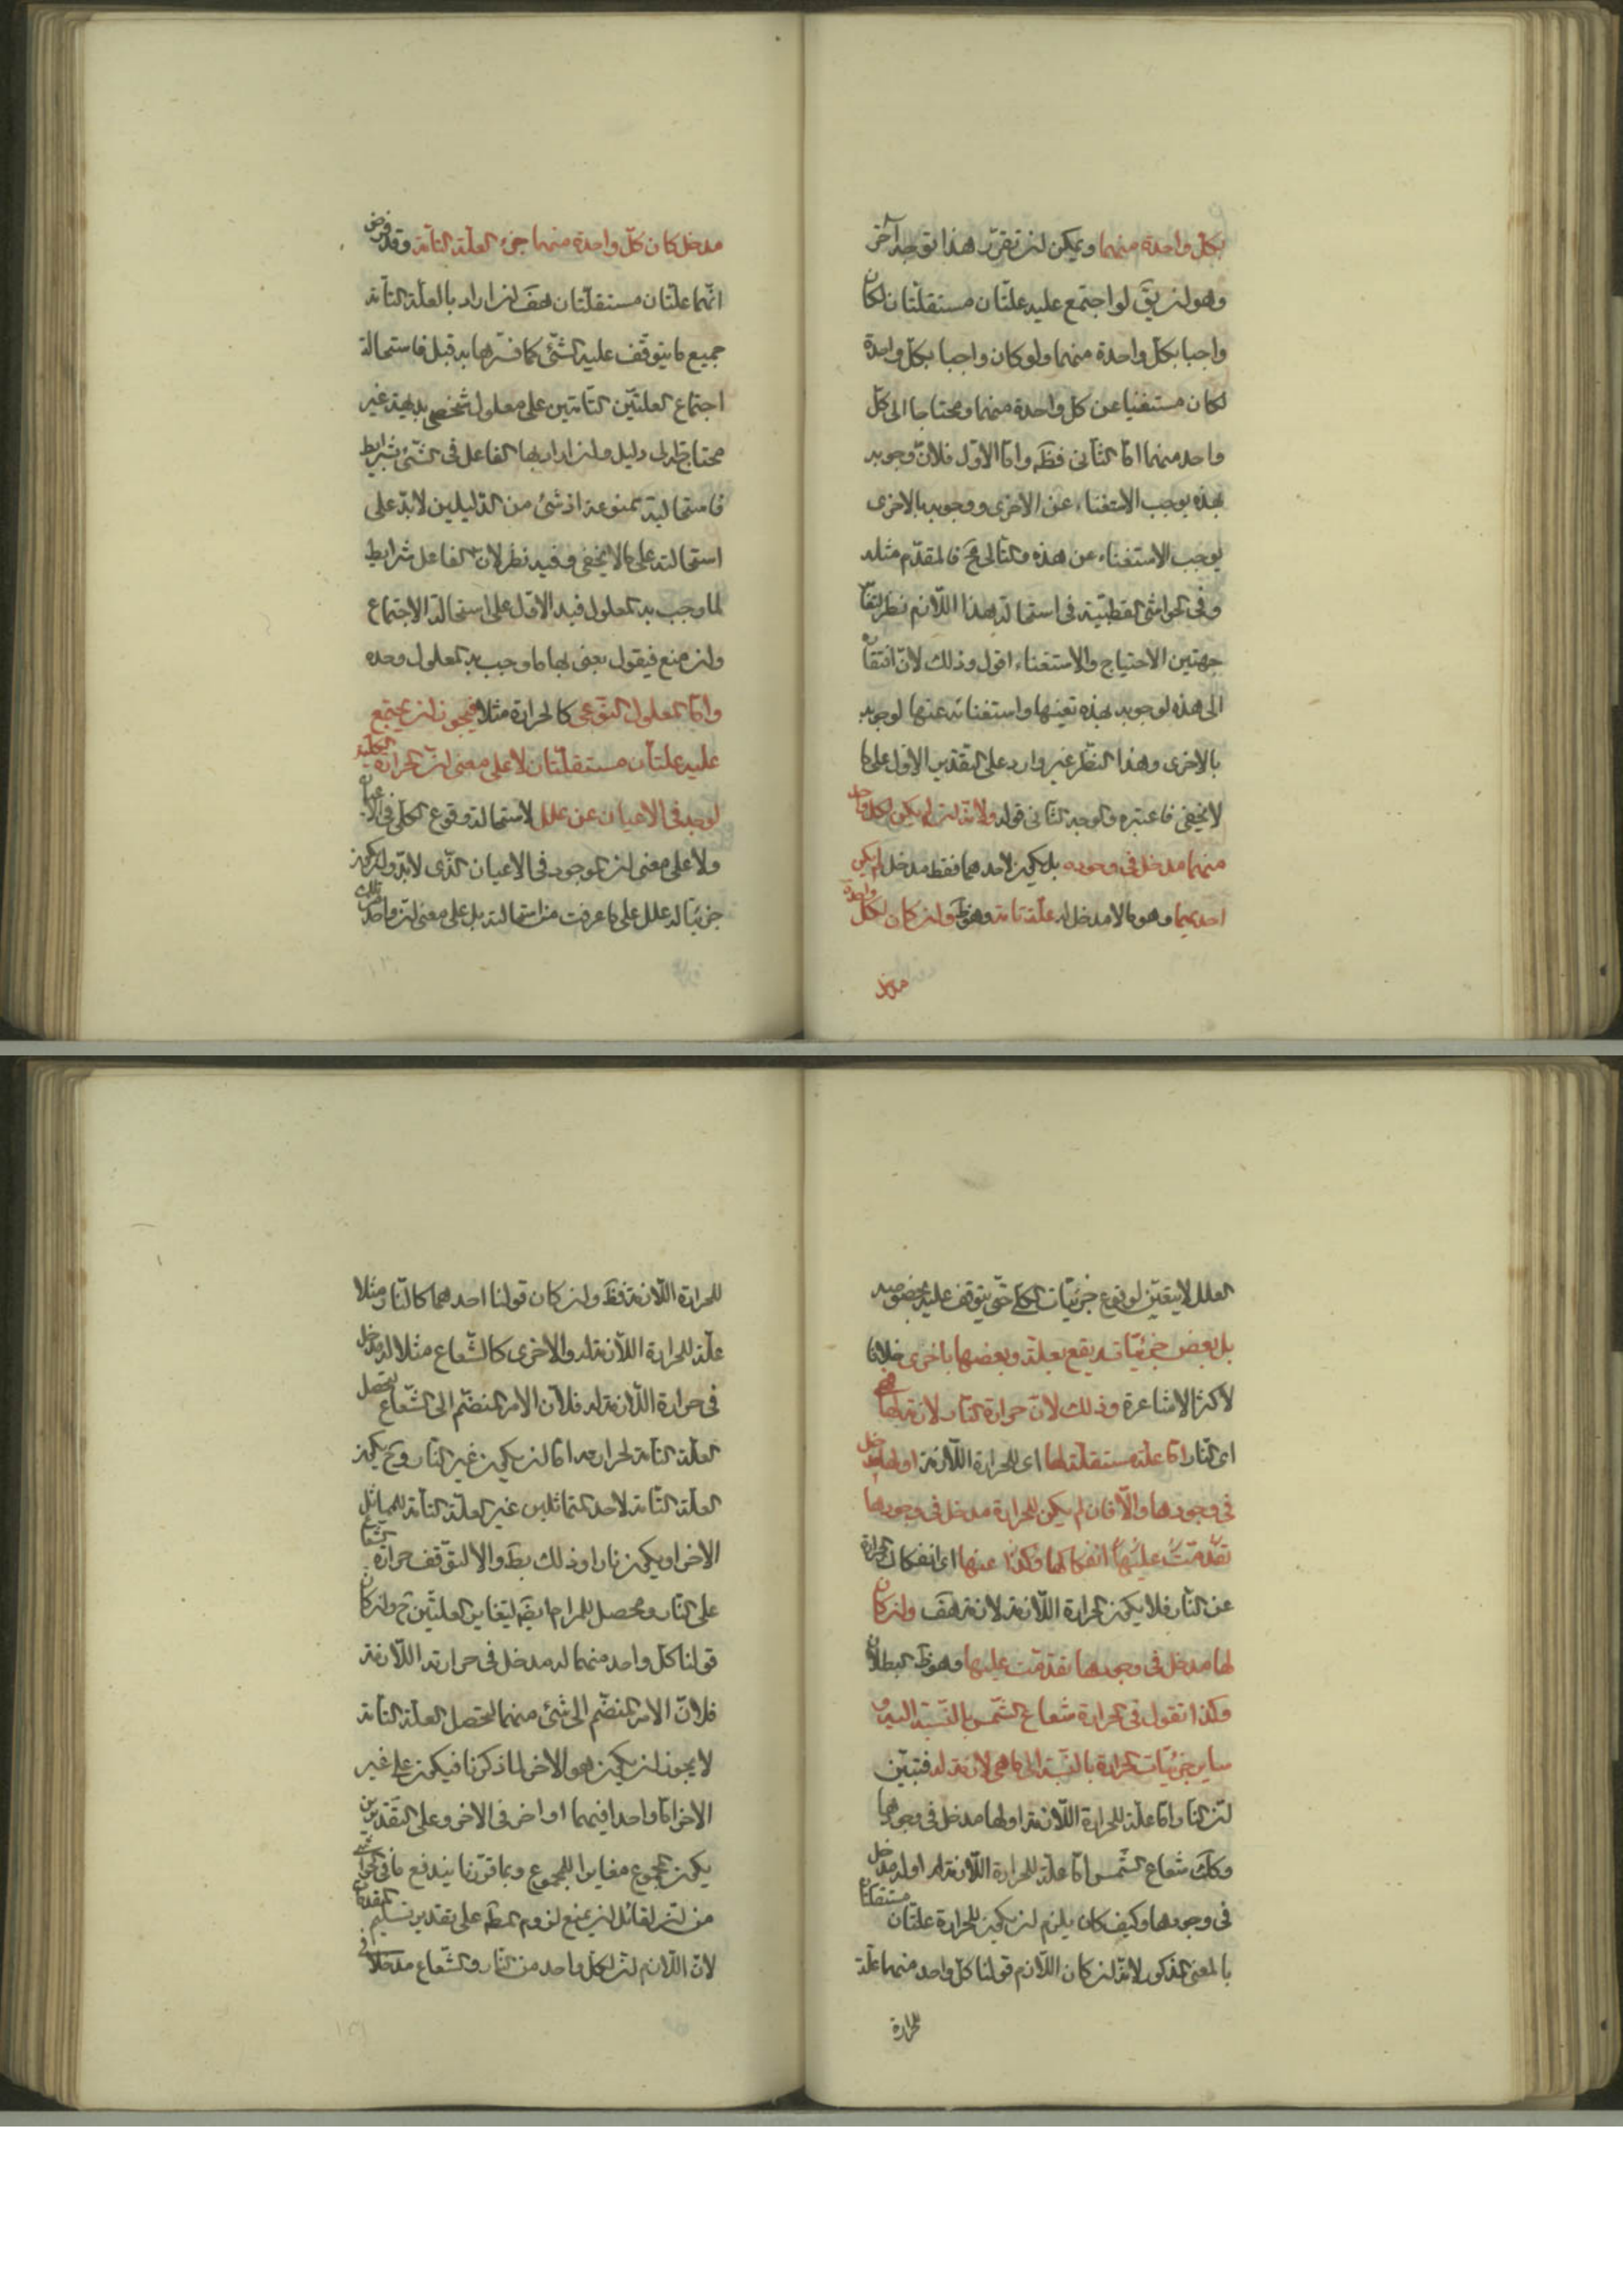 بكلّ واحدة منهما ويمكن ان تقرّر هذا بتوجيه آخر
وهو ان يقَ لو اجتمع عليه علّتان مستقلّتان لكان
واجبا بكلّ واحدة منهما ولو كان واجبا بكلّ واحدة
لكان مستغنيا عن كل واحدة منهما ومحتاجا الى كلّ
واحد منهما امّا الثانى فظَ وامّا الاوّل فلانّ وجوبه
بهذه يوجب الاستغناء عن الاخرى ووجوبه بالاخرى
يوجب الاستغناء عن هذه والتالى مح فالمقدّم مثله
وفى الحواشى القطبيّة فى استحالة هذا اللّازم نظر لتغاير
جهتين الاحتياج والاستغناء اقول وذلك لانّ افتقاره
الى هذه لوجوبه بهذه بعينها واستغنائه عنها لوجوبه
بالاخرى وهذا النظر غير وارد على التقدير الاوّل على ما
لا يخفى فاعتبره والوجه الثانى قوله ولانّه ان لم يكن لكل واحد
منهما مدخل فى وجوده بل يكون لاحدهما فقط مدخل لم يكن
احديهما وهو ما لا مدخل له علّة تامة وهو ظَ وان كان لكلّ واحدة
مدخل
مدخل كان كلّ واحدة منهما جزء العلّة التامّة وقد فرض
انّهما علّتان مستقلّتان هفَ ان اراد بالعلّة التامّة
جميع ما يتوقّف عليه الشّئ كما فسّرها به قبل فاستحالة
اجتماع العلّتين التامّتين على معلول شخصى بديهيّة غير
محتاجة الى دليل وان اراد بها الفاعل فى الشّئ بشرايط
فاستحاليّة ممنوعة اذ شئ من الدّليلين لا يدّل على
استحالته على ما لا يخفى وفيه نظر لانّ الفاعل بشرايط
لما وجب به المعلول فيه الاوّل على استحالة الاجتماع
وان منع فيقول يعنى بها ما وجب به المعلول وحده
وامّا المعلول النوعى كالحرارة مثلا فيجوز ان يجتمع
عليه علّتان مستقلّتان لا على معنى انّ الحرارة الكلّية
توجد فى الاعيان عن علل لاستحالة وقوع الكلّى فى الاعيان
ولا على معنى ان الموجود فى الاعيان الّذى لابدّ وان يكون
جزئيّا له علل على ما عرفت من استحالته بل على معنى انّ واحدا من تلك
العلل لا يتعيّن لوقوع جزئيّات الكلّى حتّى يتوقف عليه بخصوصيّه
بل بعض جزئيّاته يقع بعلّة وبعضها باخرى خلافا
لاكثر الاشاعرة وذلك لانّ حرارة النّار لازمة لها فهى
اى النّار امّا علّة مستقلّة لها اى للحرارة اللّازمة او لها مدخل
فى وجودها والّا فان لم يكن للحرارة مدخل فى وجودها
تقدّمت عليها انفكاكها وكذا عنها اى انفكاك الحرارة
عن النّار فلا يكون الحرارة اللّازمة لازمة هفَ وان كان
لها مدخل فى وجودها تقدّمت عليها وهو ظ البطلان
وكذا نقول فى الحرارة شعاع الشّمس بالنّسبة اليه و
ساير جزئيّات الحرارة بالنّسبة الى ما هى لازمة له فتبيّن
انّ النّار امّا علّة للحرارة اللّازمة او لها مدخل فى وجودها
وكك شعاع الشّمس امّا علّة للحرارة اللّازمة له او له مدخل
فى وجودها وكيف كان يلزم ان يكون للحرارة علّتان مستقلّتان
بالمعنى المذكور لانّه ان كان اللّازم قولنا كلّ واحد منهما علّة
للحرارة
للحرارة اللّازمة فظَ وان كان قولنا احدهما كالنّار مثلا
علّة للحرارة اللّازمة له والاخرى كالشّعاع مثلا له مدخل
فى حرارة اللّازمة له فلانّ الامر المنضّم الى الشّعاع يحصل
العلّة التامّة لحرارته امّا ان يكون غير النّار وح يكون
العلّة التّامة لاحد المتماثلين غير العلّة التامّة للمماثل
الاخر او يكون نارا وذلك بط والا لتوقّف حرارة الشعاع
على النّار ومحصل للمرام ايضَ لتغاير العلّتين ح وان كان
قولنا كلّ واحد منهما له مدخل فى حرارته اللّازمة
فلانّ الامر المنضّم الى شئ منهما لتحصل العلّة التامّة
لا يجوز ان يكون هو الاخر لما ذكرنا فيكون على غير
الاخر امّا واحدا فيهما او اخر فى الاخر وعلى التّقديرين
يكون المجموع مغايرا للمجموع وبما قرّرنا يندفع ما فى الحواشى
من انّ لقائل ان يمنع لزوم المط على تقدير تسليم المقدمات
لانّ اللّازم انّ لكلّ واحد من النّار والشّعاع مدخلا فى